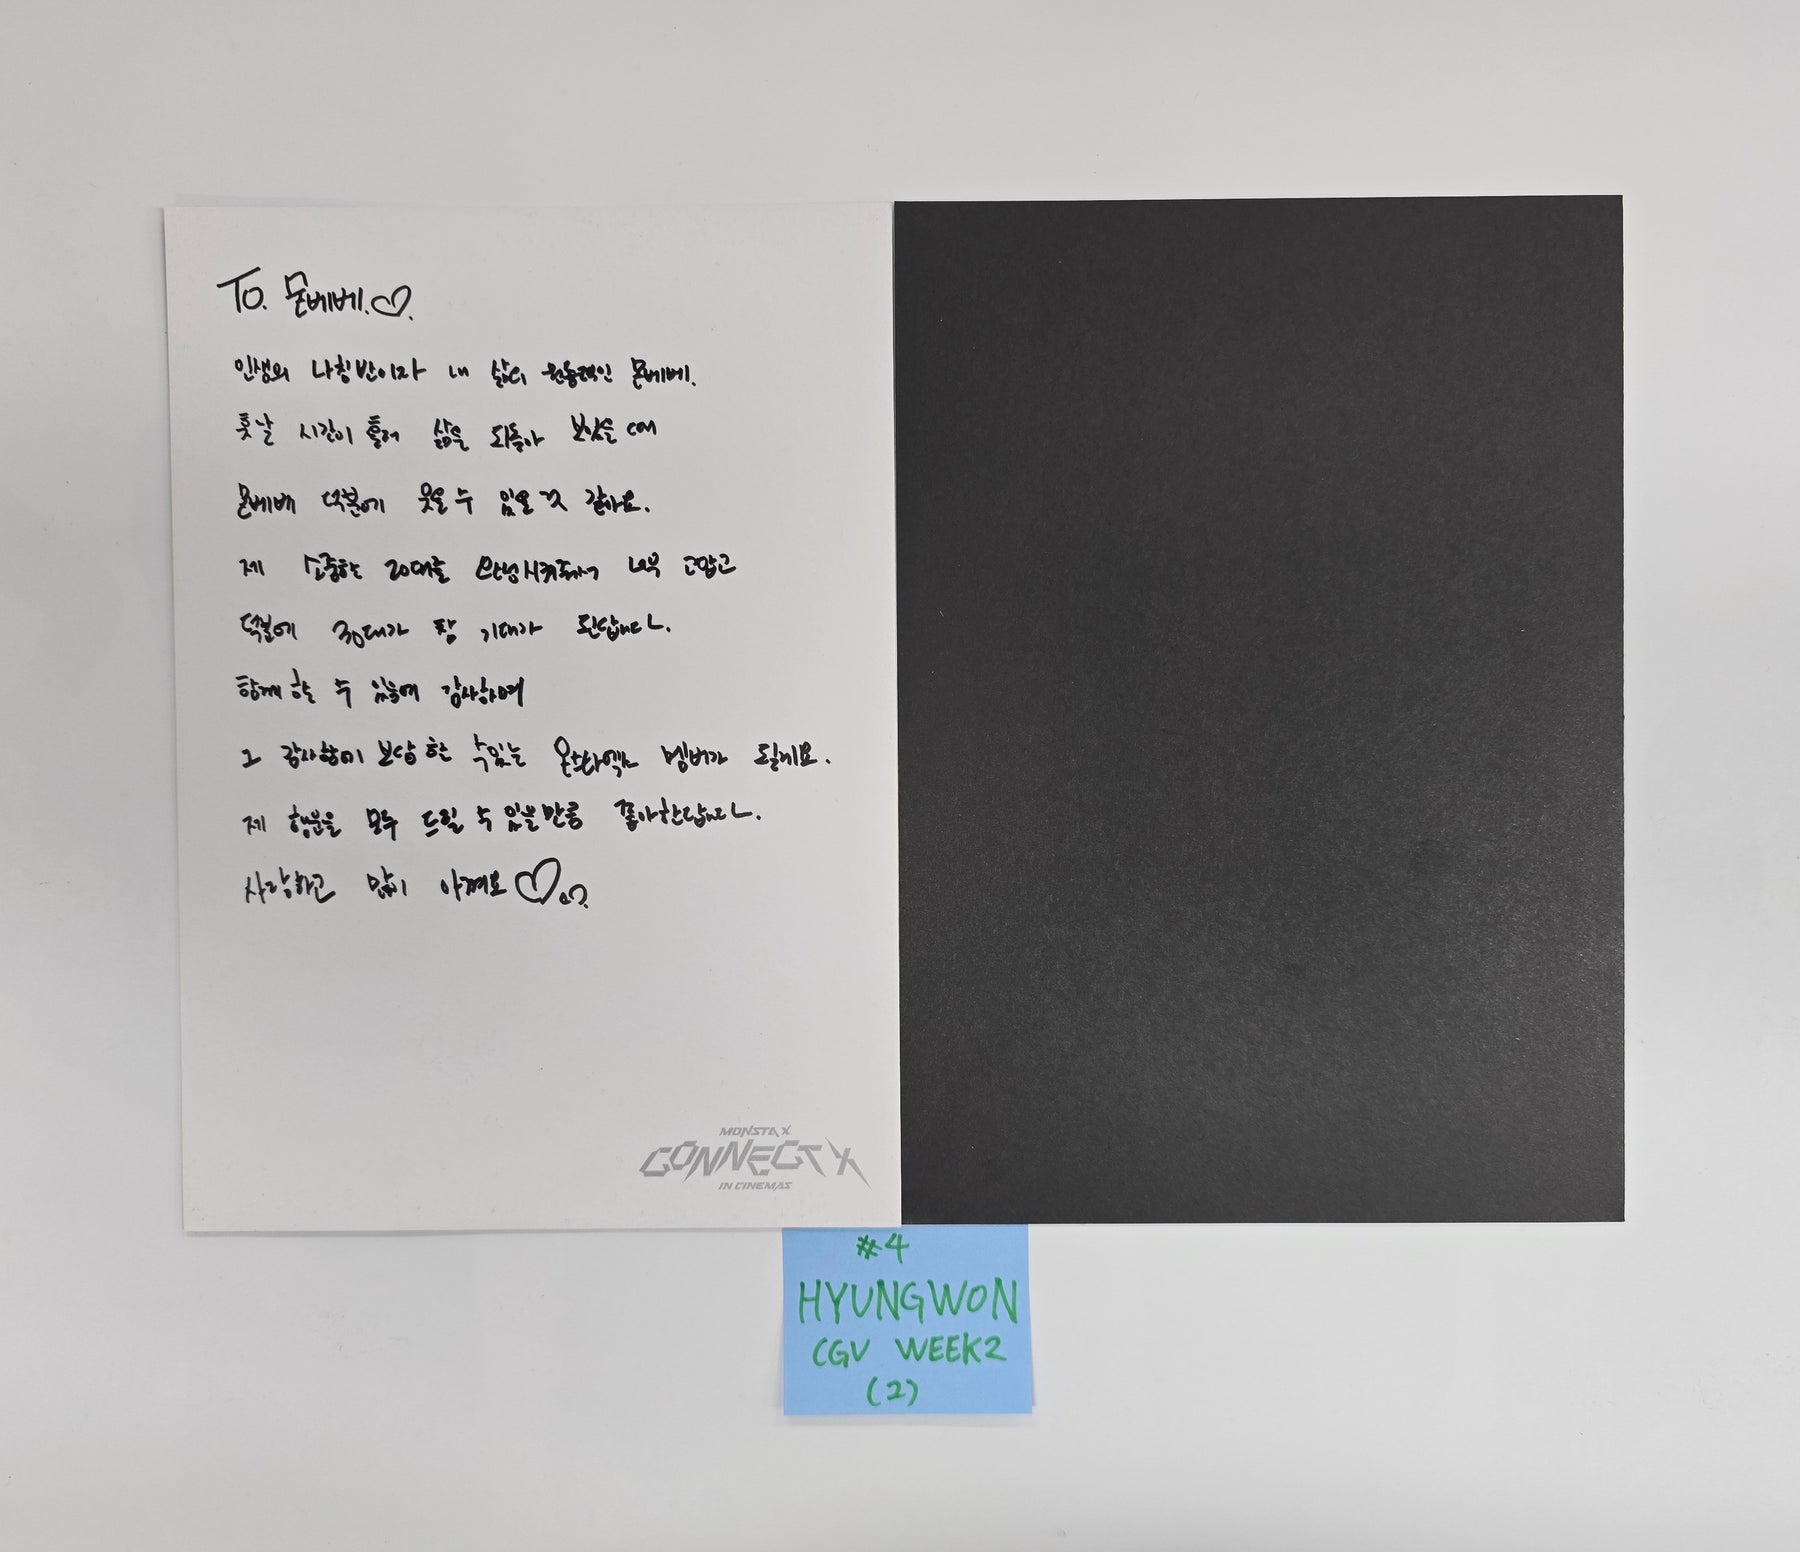 To. 몬베베.♡.
인생의 나침반이자 내 삶의 원동력인 몬베베.
훗날 시간이 흘러 삶을 되돌아 보았을 때
몬베베 덕분에 웃을 수 있을 것 같아요.
제 소중한 20대를 완성시켜줘서 너무 고맙고
덕분에 30대가 참 기대가 된답니다.
함께 할 수 있음에 감사하며
그 감사함에 보답 할 수있는 몬스타엑스 멤버가 될게요.
제 행운을 모두 드릴 수 있을만큼 좋아한답니다.
사랑하고 많이 아껴요 ♡♡.
MONSTA X
CONNECT X
IN CINEMAS
#4
HYUNGWON
CGV WEEK2
(2)